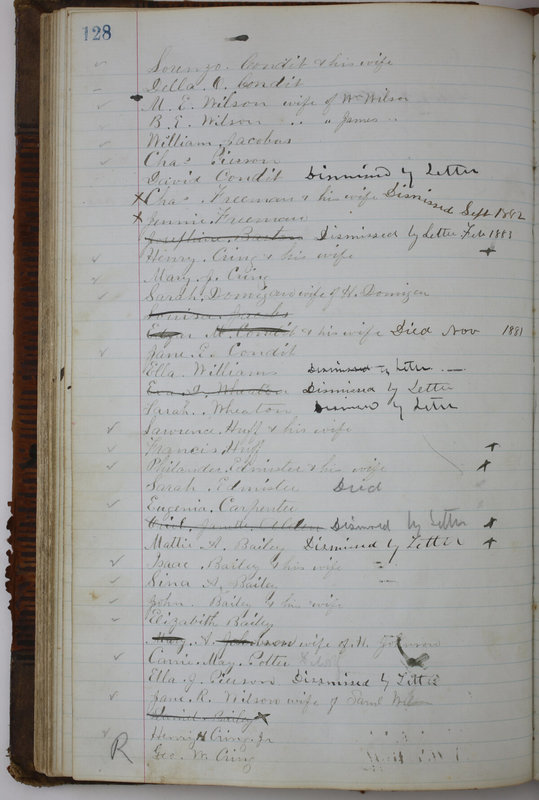 128
Lorenzo Condit & his wife
Della A. Condit
M. E. Wilson wife of Wm Wilson
B. E. Wilson " " James "
William Jacobus
Chas Pierson
David Condit Dismissed by Letter
x Chas Freeman & his wife Dismissed Sept 1882
x Jennie Freeman
Josephine Barton Dismissed by Letter Feb 1883
Henry Cring & his wife
Mary J. Cring
Sarah Domigan wife of H. Domigan
Jacobs
Edgar M. Condit & his wife Died Nov 1881
Jane E. Condit
Ella Williams Dismissed by Letter
Eva Wheaton Dismissed by Letter
Sarah Wheaton Dismissed by Letter
Lawrence Huff & his wife
Francis Huff
Philander Edminster & his wife
Sarah Edmister Died
Eugenia Carpenter
Dismissed by Letter
Mattie A. Bailey Dismissed by Letter
Isaac Bailey & his wife
Sina A. Bailey
John Bailey & his wife
Elizabeth Bailey
Mary A. Johnson wife of H.
Carrie May Potter
Ella J. Pierson Dismissed by Letter
Jane R. Wilson wife of Saml Wilson
Baily x
Henry H Cring Jr
R Geo. W. Cring